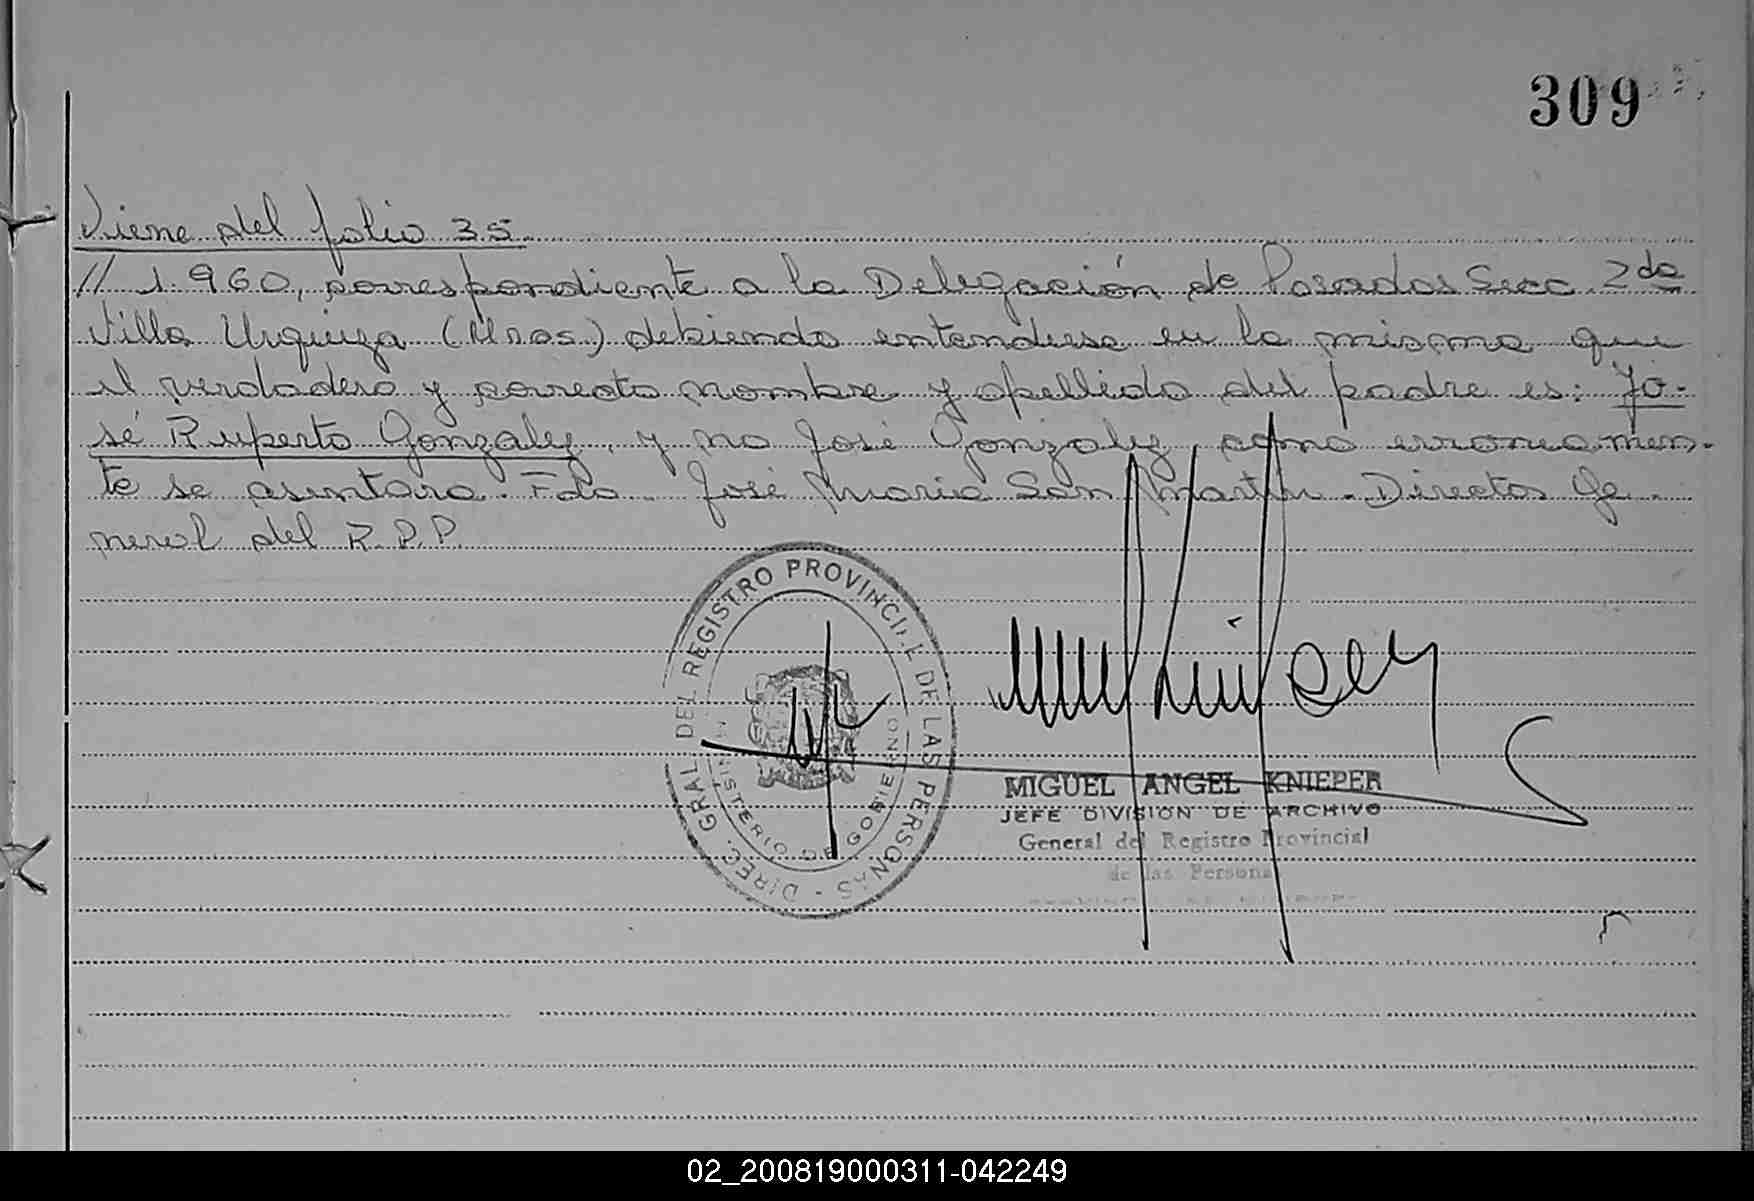 309
Viene del folio 35
// 1.960, correspondiente a la Delegación de Posadas Secc. 2da
Villa Urquiza (Mnes.) debiendo entenderse en la misma que
el verdadero y correcto nombre y apellido del padre es: Jo-
sé Ruperto Gonzalez, y no José Gonzalez como erroneamen-
te se asentara. Fdo. José Maria San Martin. Director Ge-
neral del R.P.P.
DIREC. GRAL. DEL REGISTRO PROVINCIAL DE LAS PERSONAS -
MINISTERIO DE GOBIERNO
MIGUEL ANGEL KNIEPER
JEFE DIVISION DE ARCHIVO
General del Registro Provincial
de las Personas
02_200819000311-042249